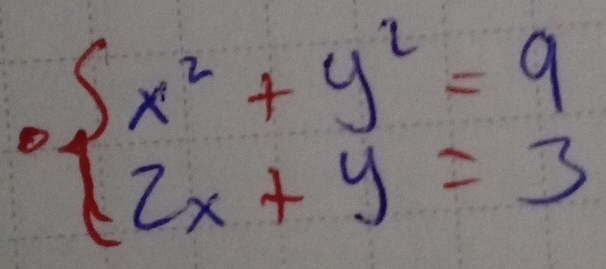 x² + y² = 9
2x + y = 3